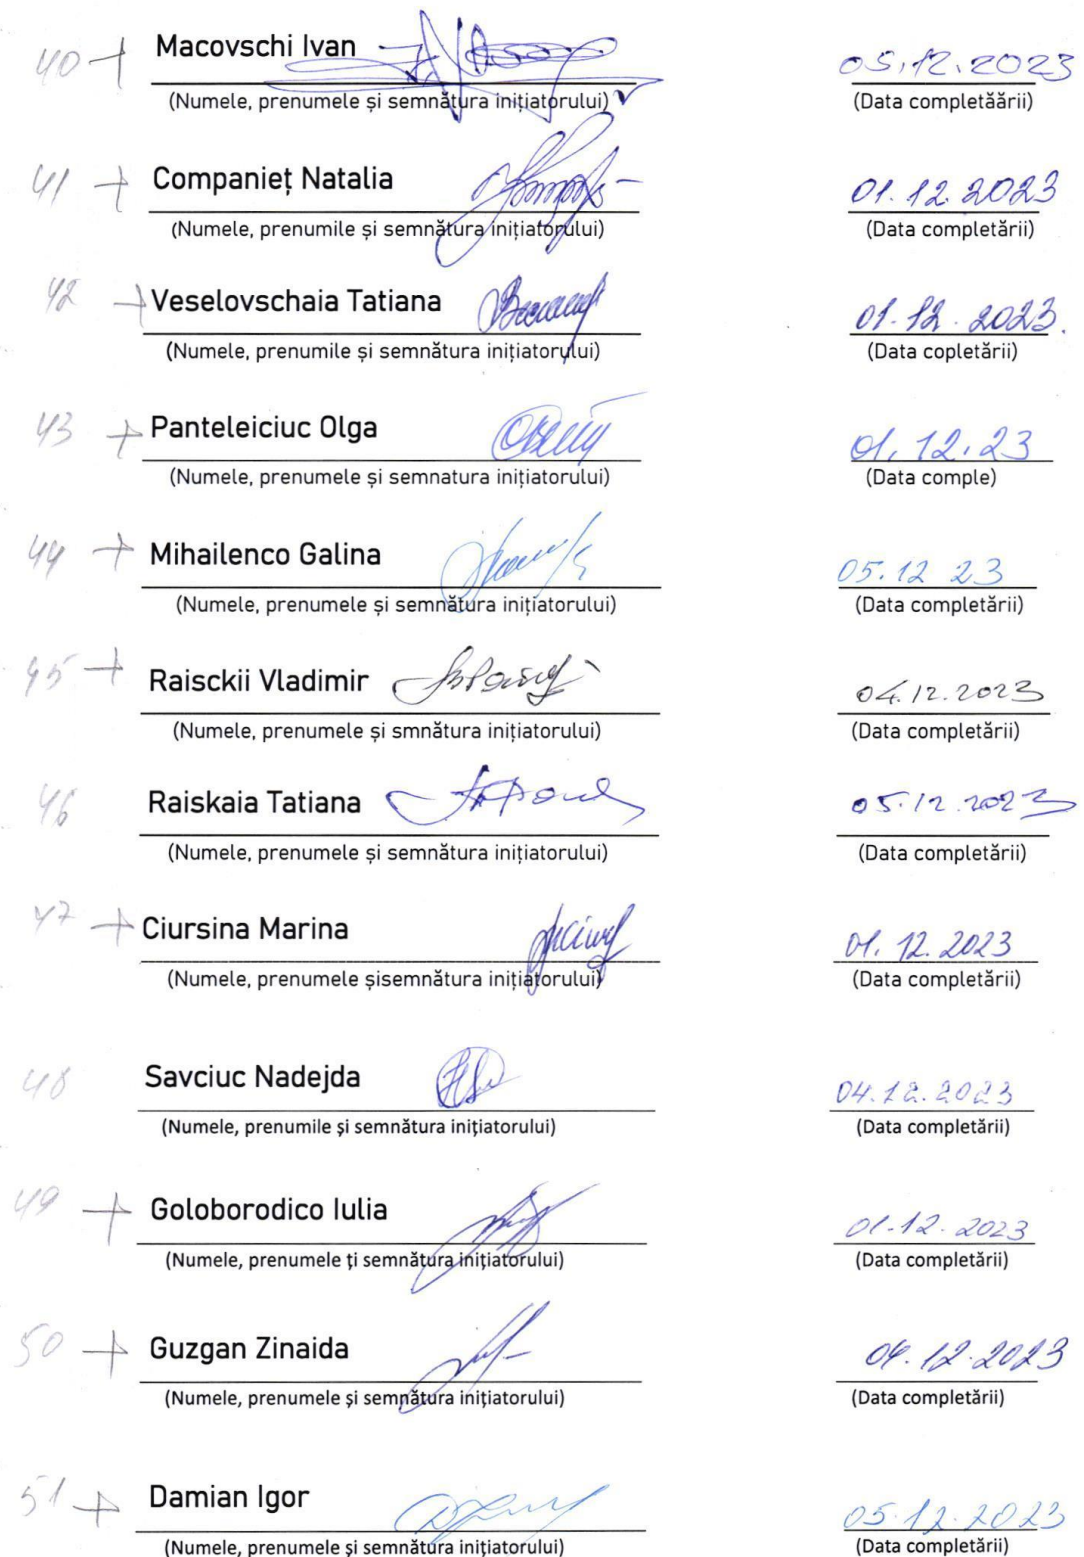 40 Macovschi Ivan 05.12.2023
(Numele, prenumele și semnătura inițiatorului) (Data completăării)
41 Companieț Natalia 01.12.2023
(Numele, prenumile și semnătura inițiatorului) (Data completării)
42 Veselovschaia Tatiana 01.12.2023.
(Numele, prenumile și semnătura inițiatorului) (Data copletării)
43 Panteleiciuc Olga 01.12.23
(Numele, prenumele și semnatura inițiatorului) (Data comple)
44 Mihailenco Galina 05.12 23
(Numele, prenumele și semnătura inițiatorului) (Data completării)
45 Raisckii Vladimir 04.12.2023
(Numele, prenumele și smnătura inițiatorului) (Data completării)
46 Raiskaia Tatiana 05.12.2023
(Numele, prenumele și semnătura inițiatorului) (Data completării)
47 Ciursina Marina 01.12.2023
(Numele, prenumele șisemnătura inițiatorului) (Data completării)
48 Savciuc Nadejda 04.12.2023
(Numele, prenumile și semnătura inițiatorului) (Data completării)
49 Goloborodico Iulia 01.12.2023
(Numele, prenumele ți semnătura inițiatorului) (Data completării)
50 Guzgan Zinaida 12.2023
(Numele, prenumele și semnătura inițiatorului) (Data completării)
51 Damian Igor 05.12.2023
(Numele, prenumele și semnătura inițiatorului) (Data completării)